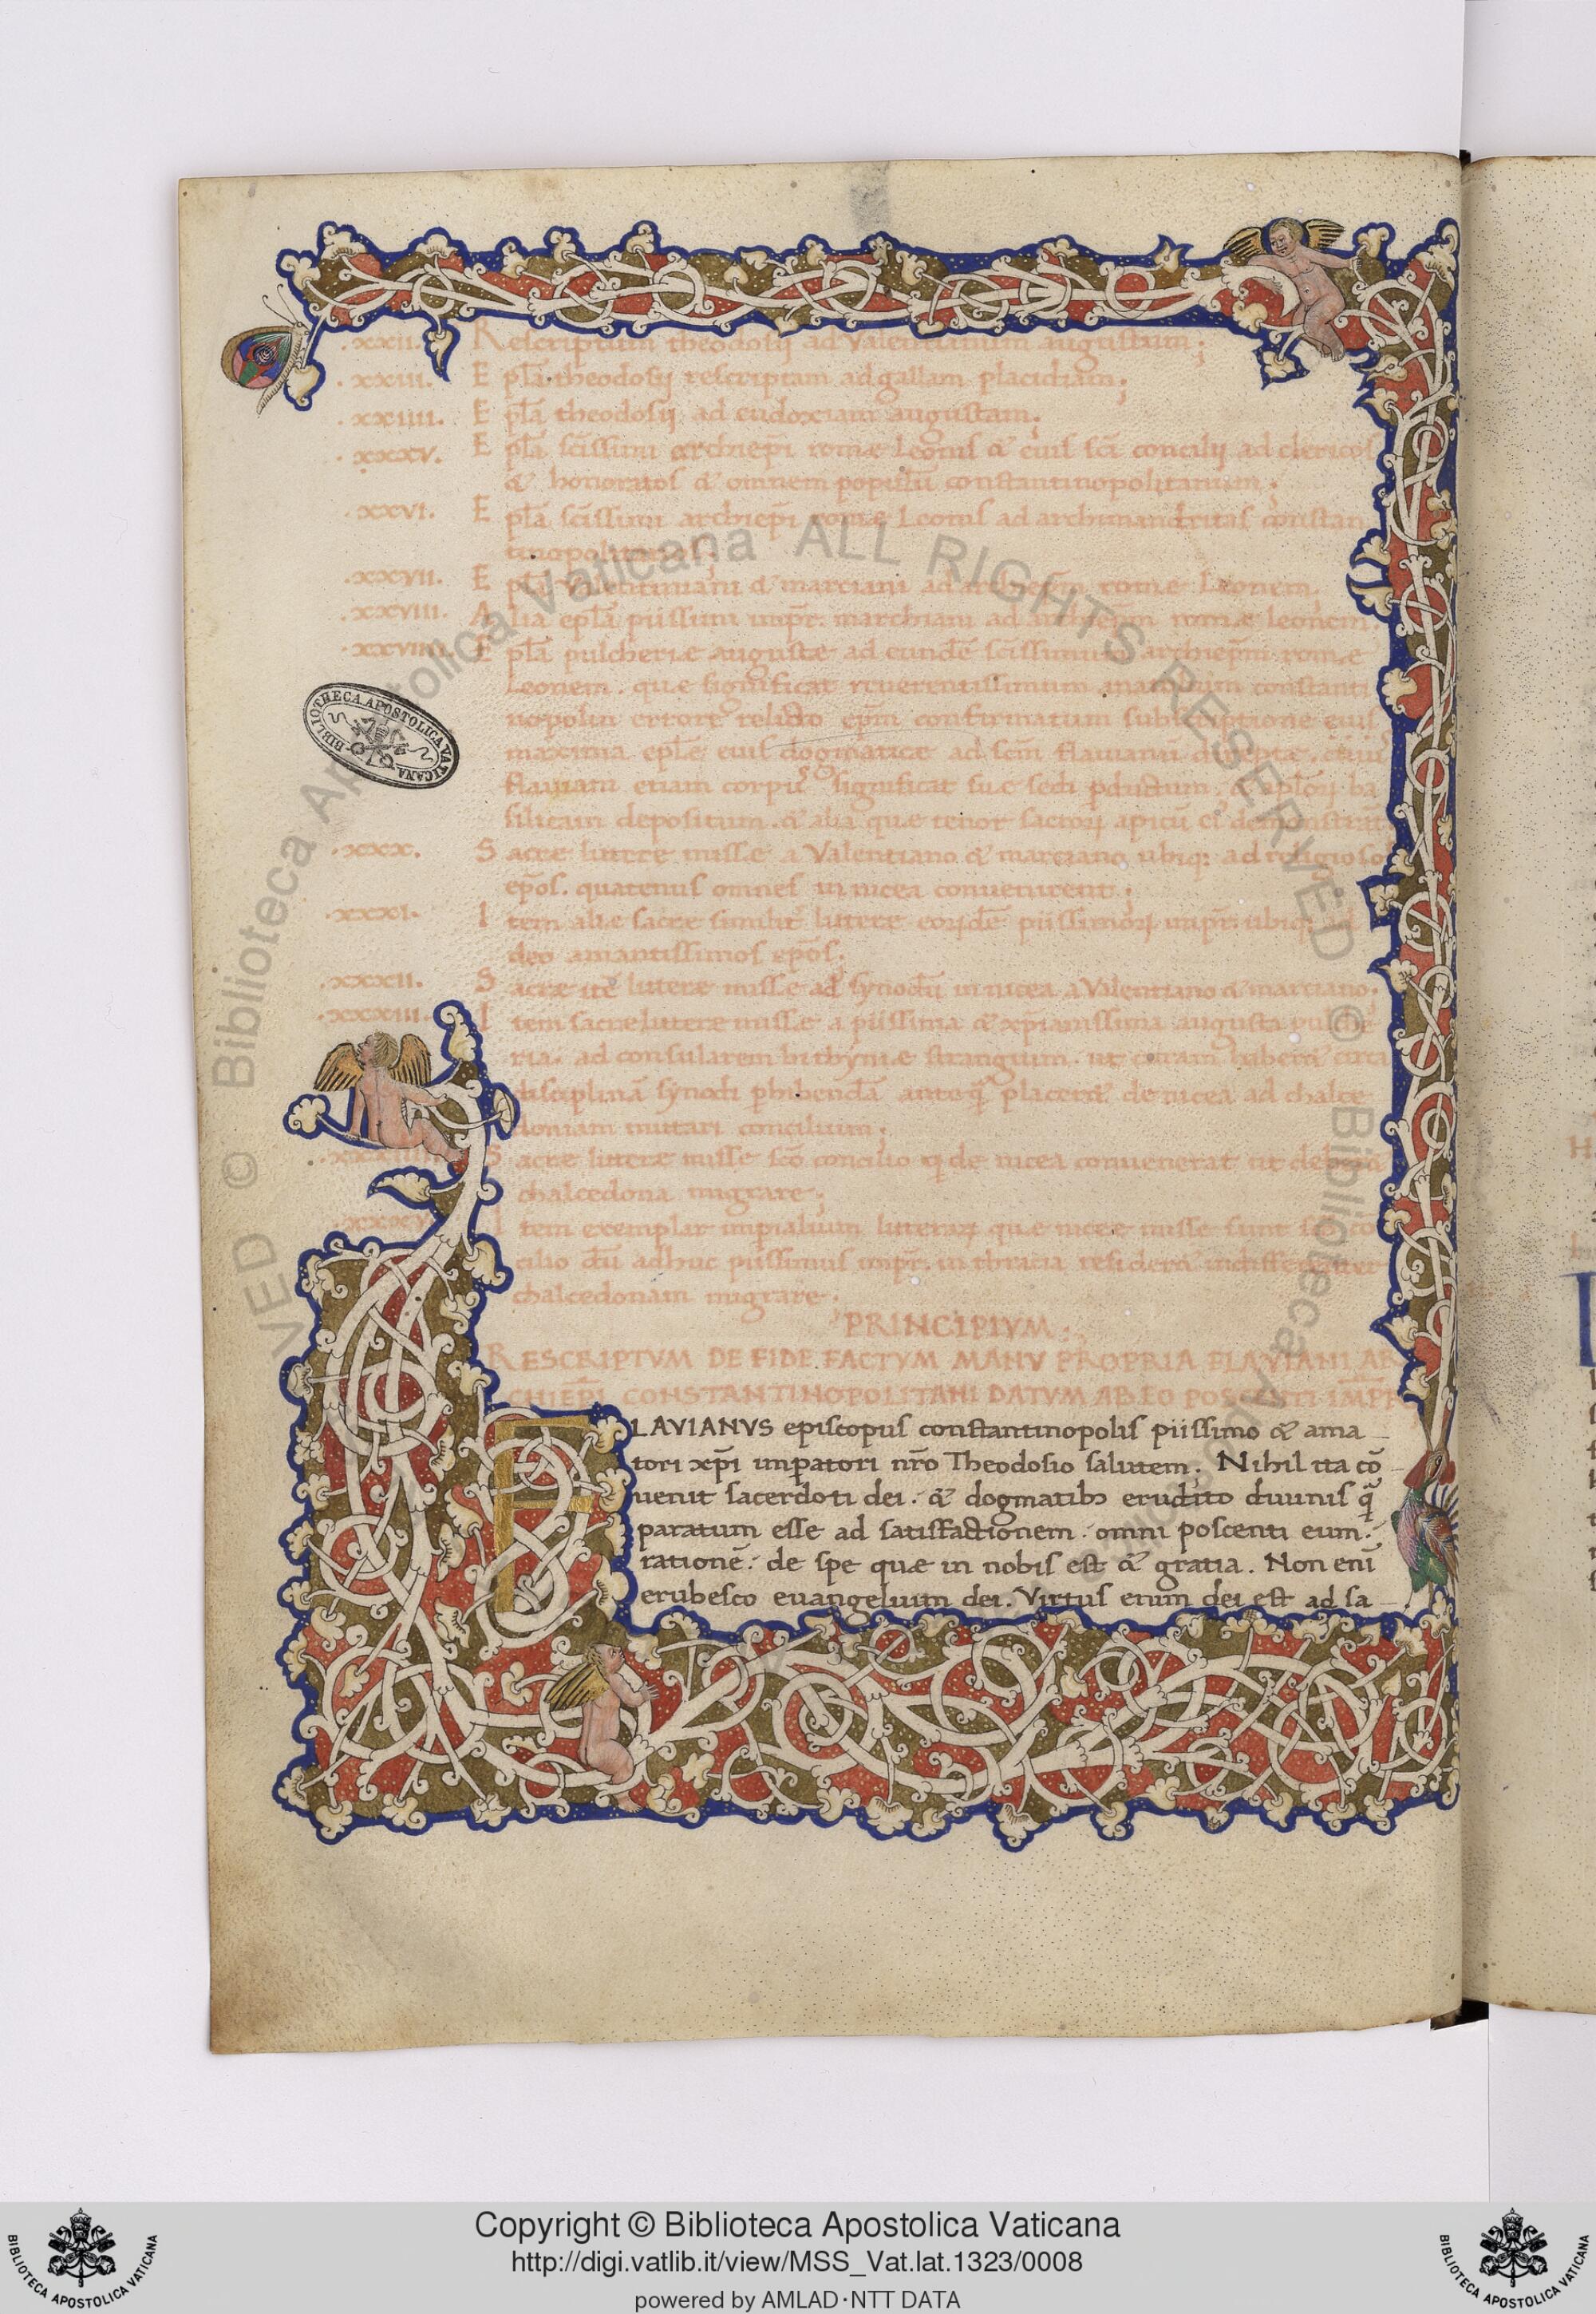 .xxii. Rescriptum theodosij ad Valentinianum augustum;
.xxiii. E pl̄a theodosij rescriptam ad gallam placidiam;
.xxiiii. E pl̄a theodosij ad eudoxiam augustam.
.xxxv. E pl̄a sc̄issimi archiep̄i romæ Leonis & eius sc̄i concilij ad clericos
& honoratos & omnem populū constantinopolitanum;
.xxvi. E pl̄a sc̄issimi archiep̄i romæ Leonis ad archimandritas constan
tinopolitanos;
.xxvii. E pl̄a Valentiniani & marciani ad romæ Leonem.
.xxviii. A lia epl̄a piissimi imp̄r. marchiani ad romæ leonem;
.xxviiii. E pl̄a pulcheriæ augustæ ad eundē sc̄issimum archiep̄m romæ
Leonem. quæ significat constanti
nopolim errore relicto ep̄m confirmatum subscriptione eius
maxima epl̄æ eius dogmaticæ ad sc̄m
flauiani etiam corpus significat suæ sedi ba
silicam depositum. & alia quæ tenor
.xxx. S acræ litteræ missæ a Valentiano & marciano ubiq; ad religiosos
ep̄os. quatenus omnes in nicea conuenirent;
.xxxi. I tem aliæ sacræ litteræ piissimoꝝ imp̄r. ubiq; ad
deo amantissimos ep̄os;
.xxxii. S acræ itē litteræ missæ ad synodū in nicea a Valentiano & marciano;
.xxxiii. I tem sacræ litteræ missæ a piissima & xp̄ianissima augusta pulche
ria. ad consularem bithyniæ strangium. ut curam circa
disciplinā synodi de nicea ad chalce
doniam mutari concilium;
S acræ litteræ missæ sc̄o concilio de nicea conuenerat ut
chalcedona migrare;
I tem exemplar litteraꝝ quæ niceæ missæ sunt
cilio adhuc piissimus imp̄r. in thracia
chalcedonam migrare.
PRINCIPIVM;
RESCRIPTVM DE FIDE FACTVM MANV PROPRIA FLAVIANI AR
CHIEP̄I CONSTANTINOPOLITANI DATVM AB EO
FLAVIANVS episcopus constantinopolis piissimo & ama
tori xp̄i imperatori nr̄o Theodosio salutem. Nihil ita cō
uenit sacerdoti dei. & dogmatibꝫ erudito diuinis q̄
paratum esse ad satisfactionem. omni poscenti eum.
rationē. de spe quæ in nobis est & gratia. Non enī
erubesco euangelium dei. Virtus enim dei est ad sa
BIBLIOTHECA APOSTOLICA VATICANA
© Biblioteca Apostolica Vaticana ALL RIGHTS RESERVED © Biblioteca Apostolica
Copyright © Biblioteca Apostolica Vaticana
http://digi.vatlib.it/view/MSS_Vat.lat.1323/0008
powered by AMLAD·NTT DATA
BIBLIOTECA APOSTOLICA VATICANA
BIBLIOTECA APOSTOLICA VATICANA